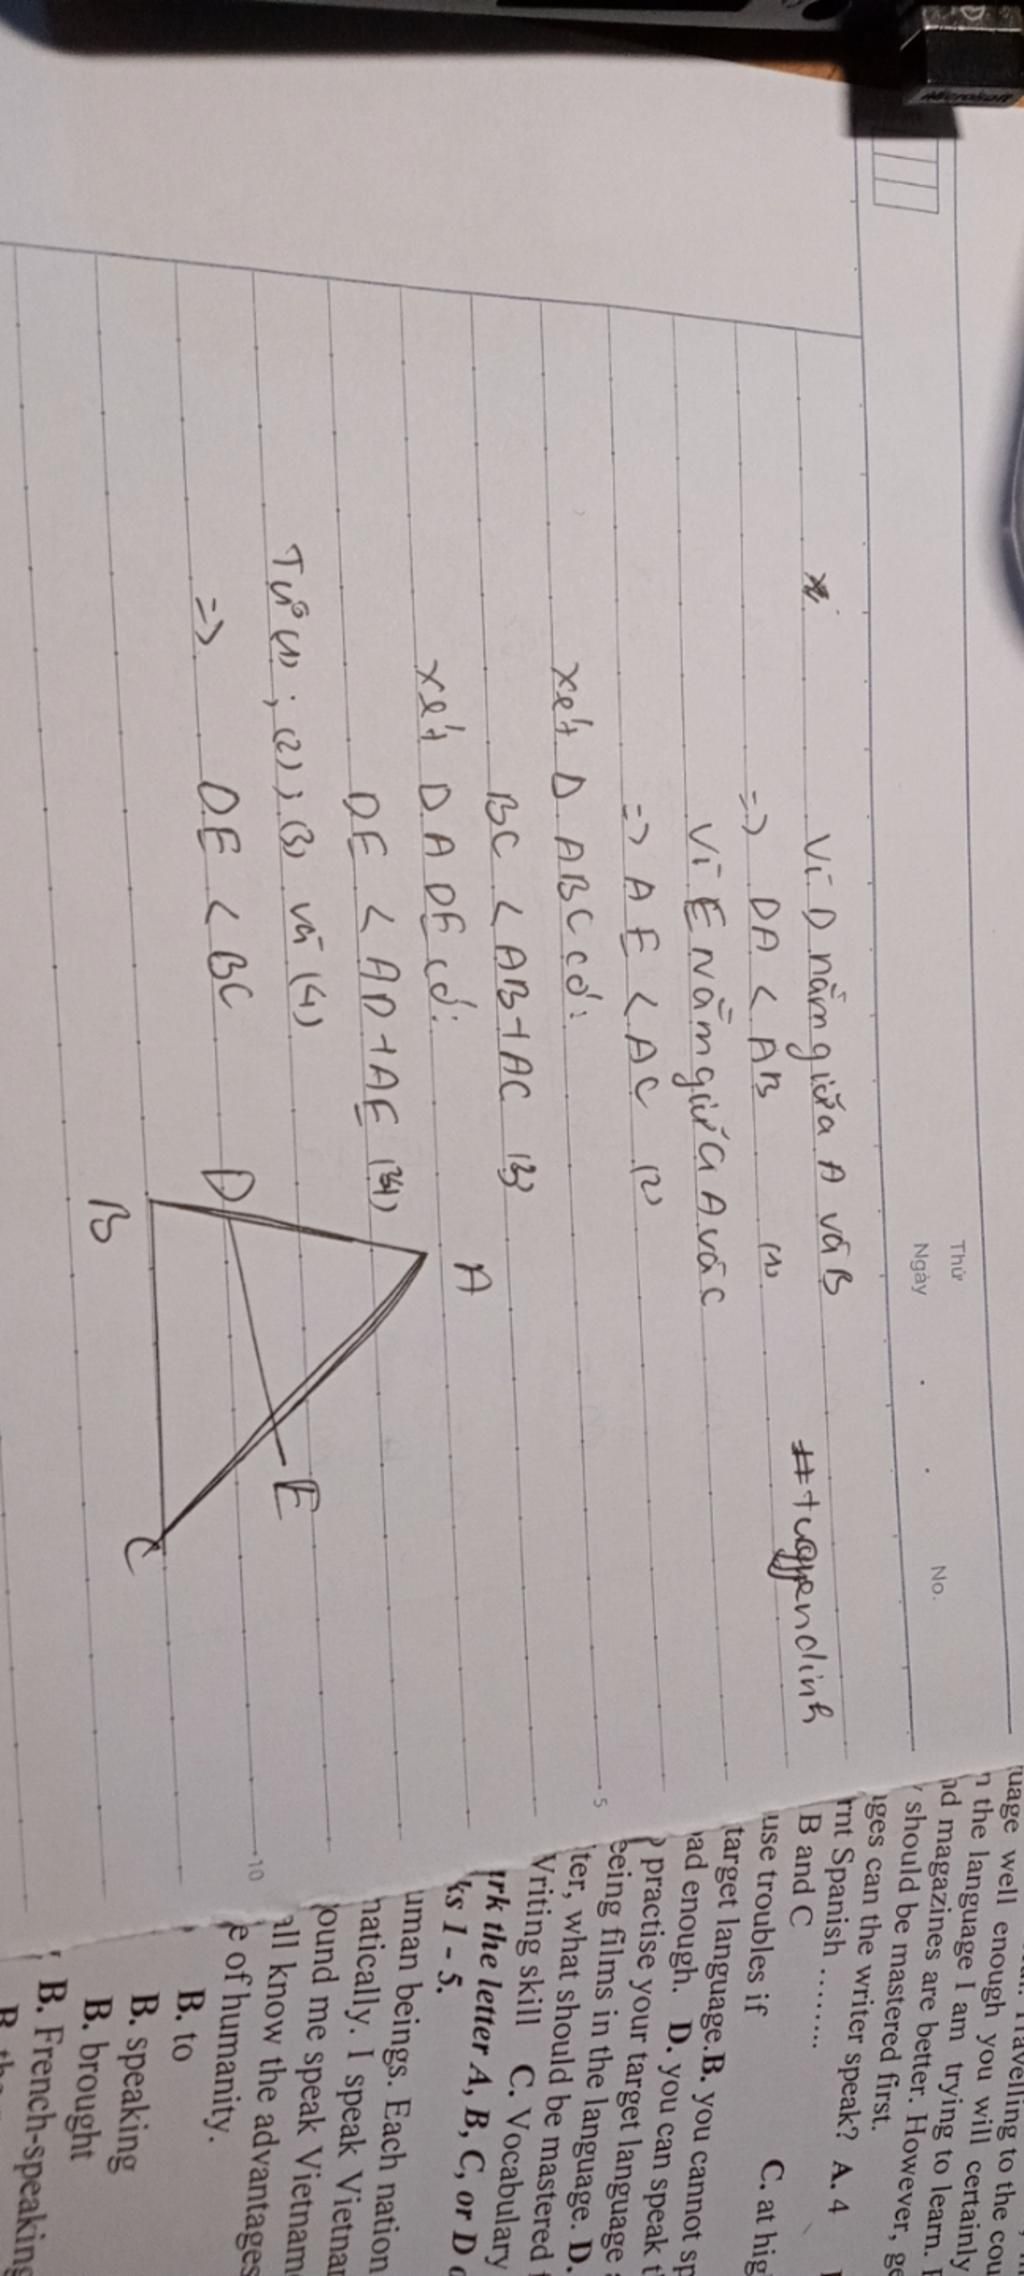 Microsoft
Thứ
Ngày . . No.
#tuyendinh
Vì D nằm giữa A và B
=> DA < AB (1)
Vì E nằm giữa A và C
=> AE < AC (2)
xét D ABC có:
BC < AB+AC (3)
xét D ADE có:
DE < AD+AE (4)
Từ (1); (2); (3) và (4)
=> DE < BC
A
D
E
B
C
5
10
uage well enough you will certainly
n the language I am trying to learn.
nd magazines are better. However, ge
should be mastered first.
ages can the writer speak? A. 4
rnt Spanish ........
B and C
use troubles if C. at hig
target language. B. you cannot sp
ad enough. D. you can speak t
practise your target language
eeing films in the language. D.
ter, what should be mastered
Writing skill C. Vocabulary
ark the letter A, B, C, or D
ks 1 - 5.
uman beings. Each nation
natically. I speak Vietnam
ound me speak Vietnam
all know the advantages
e of humanity.
B. to
B. speaking
B. brought
B. French-speaking